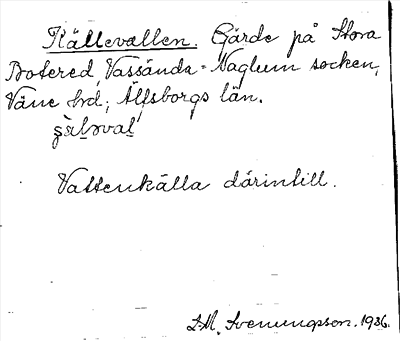 Källevallen. Gärde på Stora
Botered, Vassända-Naglum socken,
Väne hd; Älfsborgs län.
Vattenkälla därintill.
D.M. Svenungsson. 1936.